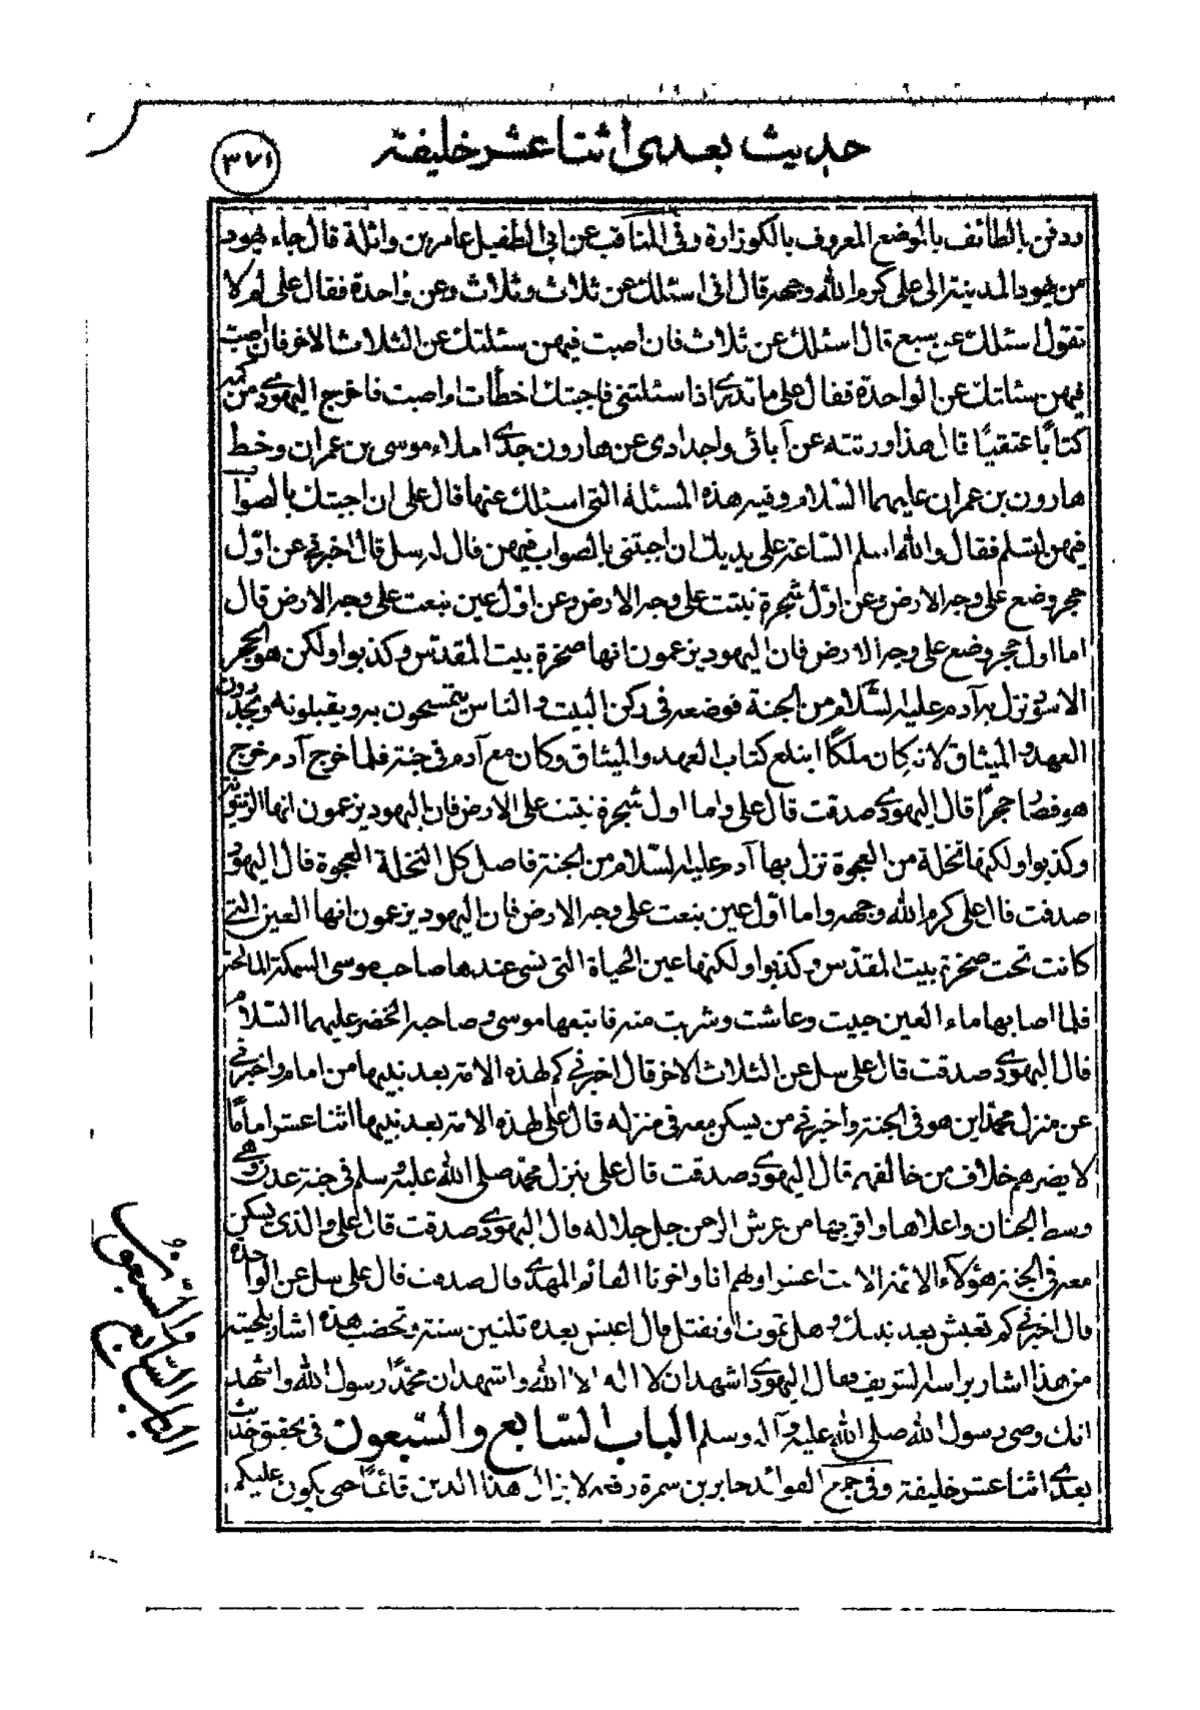 حديث بعدى اثنا عشر خليفة
٣٧١
ودفن بالطائف بالموضع المعروف بالكوزارة وفى المناقب عن ابى الطفيل عامر بن واثلة قال جاء يهود
من يهود المدينة الى على كرم الله وجهه قال انى اسئلك عن ثلاث وثلاث وعن واحدة فقال على لم لا
تقول اسئلك عن سبع قال اسئلك عن ثلاث فان اصبت فيهن سئلتك عن الثلاث الاخر فان اصبت
فيهن سئلتك عن الواحدة فقال على ما تدرى اذا سئلتنى فاجبتك اخطأت ام اصبت فاخرج اليهودى من كمه
كتابًا عتقيًا قال هذا ورثته عن آبائى واجدادى عن هارون جدى املاء موسى بن عمران وخط
هارون بن عمران عليهما السلام وفيه هذه المسئلة التى اسئلك عنها قال على ان اجبتك بالصواب
فيهن لتسلم فقال والله اسلم الساعة على يديك ان اجبتنى بالصواب فيهن قال له سل قال اخبرنى عن اوّل
حجر وضع على وجه الارض وعن اوّل شجرة نبتت على وجه الارض وعن اوّل عين نبعت على وجه الارض قال
اما اول حجر وضع على وجه الارض فان اليهود يزعمون انها صخرة بيت المقدس وكذبوا ولكن هو الحجر
الاسود نزل به آدم عليه السّلام من الجنة فوضعه فى ركن البيت والناس يتمسحون به ويقبلونه ويجددون
العهد والميثاق لانه كان ملكًا ابتلع كتاب العهد والميثاق وكان مع آدم فى جنة فلما خرج آدم خرج
هو فصار حجرًا قال اليهودى صدقت قال على واما اول شجرة نبتت على الارض فان اليهود يزعمون انها الزيتون
وكذبوا ولكنها نخلة من العجوة نزل بها آدم عليه السّلام من الجنة فاصل كل النخلة العجوة قال اليهود
صدقت قال على كرم الله وجهه واما اوّل عين نبعت على وجه الارض فان اليهود يزعمون انها العين التى
كانت تحت صخرة بيت المقدس وكذبوا ولكنها عين الحياة التى نسى عندها صاحب موسى السمكة المالحة
فلما اصابها ماء العين حييت وعاشت وشربت منه فاتبعها موسى وصاحبه الخضر عليهما السّلام
قال اليهودى صدقت قال على سل عن الثلاث الاخر قال اخبرنى كم لهذه الامة بعد نبيها من امام واخبرنى
عن منزل محمّد اين هو فى الجنة واخبرنى من يسكن معه فى منزله قال على لهذه الامة بعد نبيها اثنا عشر امامًا
لا يضرهم خلاف من خالفهم قال اليهودى صدقت قال على ينزل محمّد صلى الله عليه وسلم فى جنة عدن وهى
وسط الجنان واعلاها واقربها من عرش الرحمن جل جلاله قال اليهودى صدقت قال على والذى يسكن
معه فى الجنة هؤلاء الائمة الاثنا عشر اولهم انا واخرنا القائم المهدى قال صدقت قال على سل عن الواحدة
قال اخبرنى كم تعيش بعد نبيك وهل تموت او تقتل قال اعيش بعده ثلثين سنة وتخضب هذه اشار بلحيته
من هذا اشار برأسه الشريف فقال اليهودى اشهد ان لا اله الا الله واشهد ان محمّدًا رسول الله واشهد
انك وصى رسول الله صلى الله عليه وآله وسلم الباب السّابع والسّبعون فى تحقيق حديث
بعدى اثنا عشر خليفة وفى جمع الفوائد جابر بن سمرة رفعه لا يزال هذا الدين قائمًا حتى يكون عليكم
الباب السّابع والسّبعون